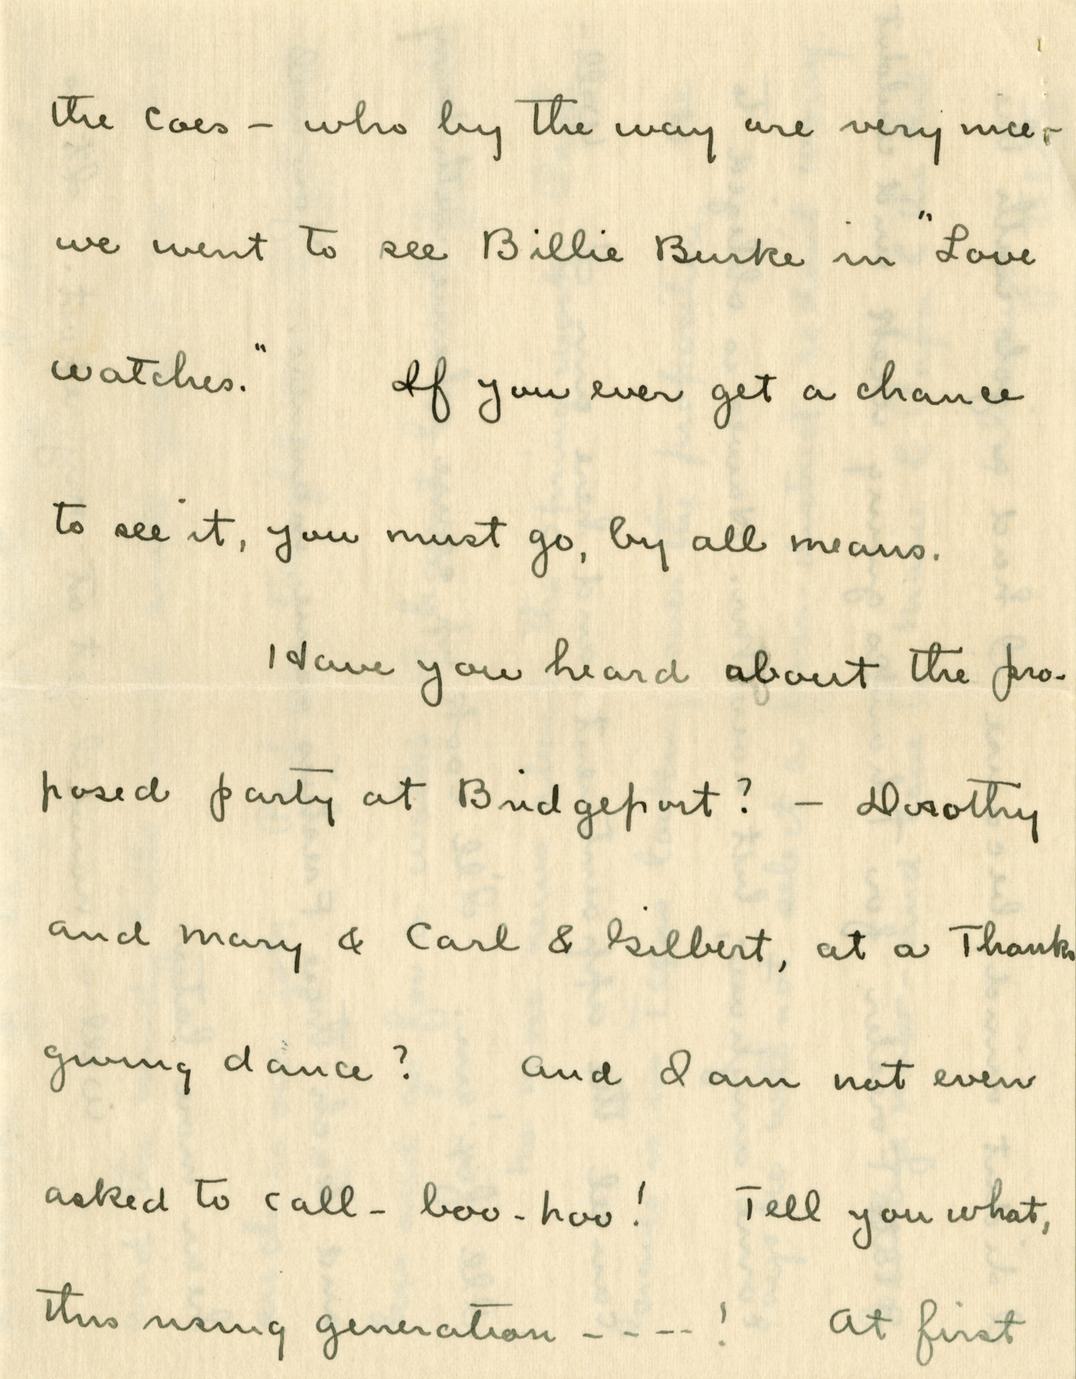 the Coes – who by the way are very nice, –
we went to see Billie Burke in "Love
watches." If you ever get a chance
to see it, you must go, by all means.
Have you heard about the pro-
posed party at Bridgeport? – Dorothy
and Mary & Carl & Gilbert, at a Thanks
giving dance? And I am not even
asked to call – boo-hoo! Tell you what,
this rising generation ----! At first